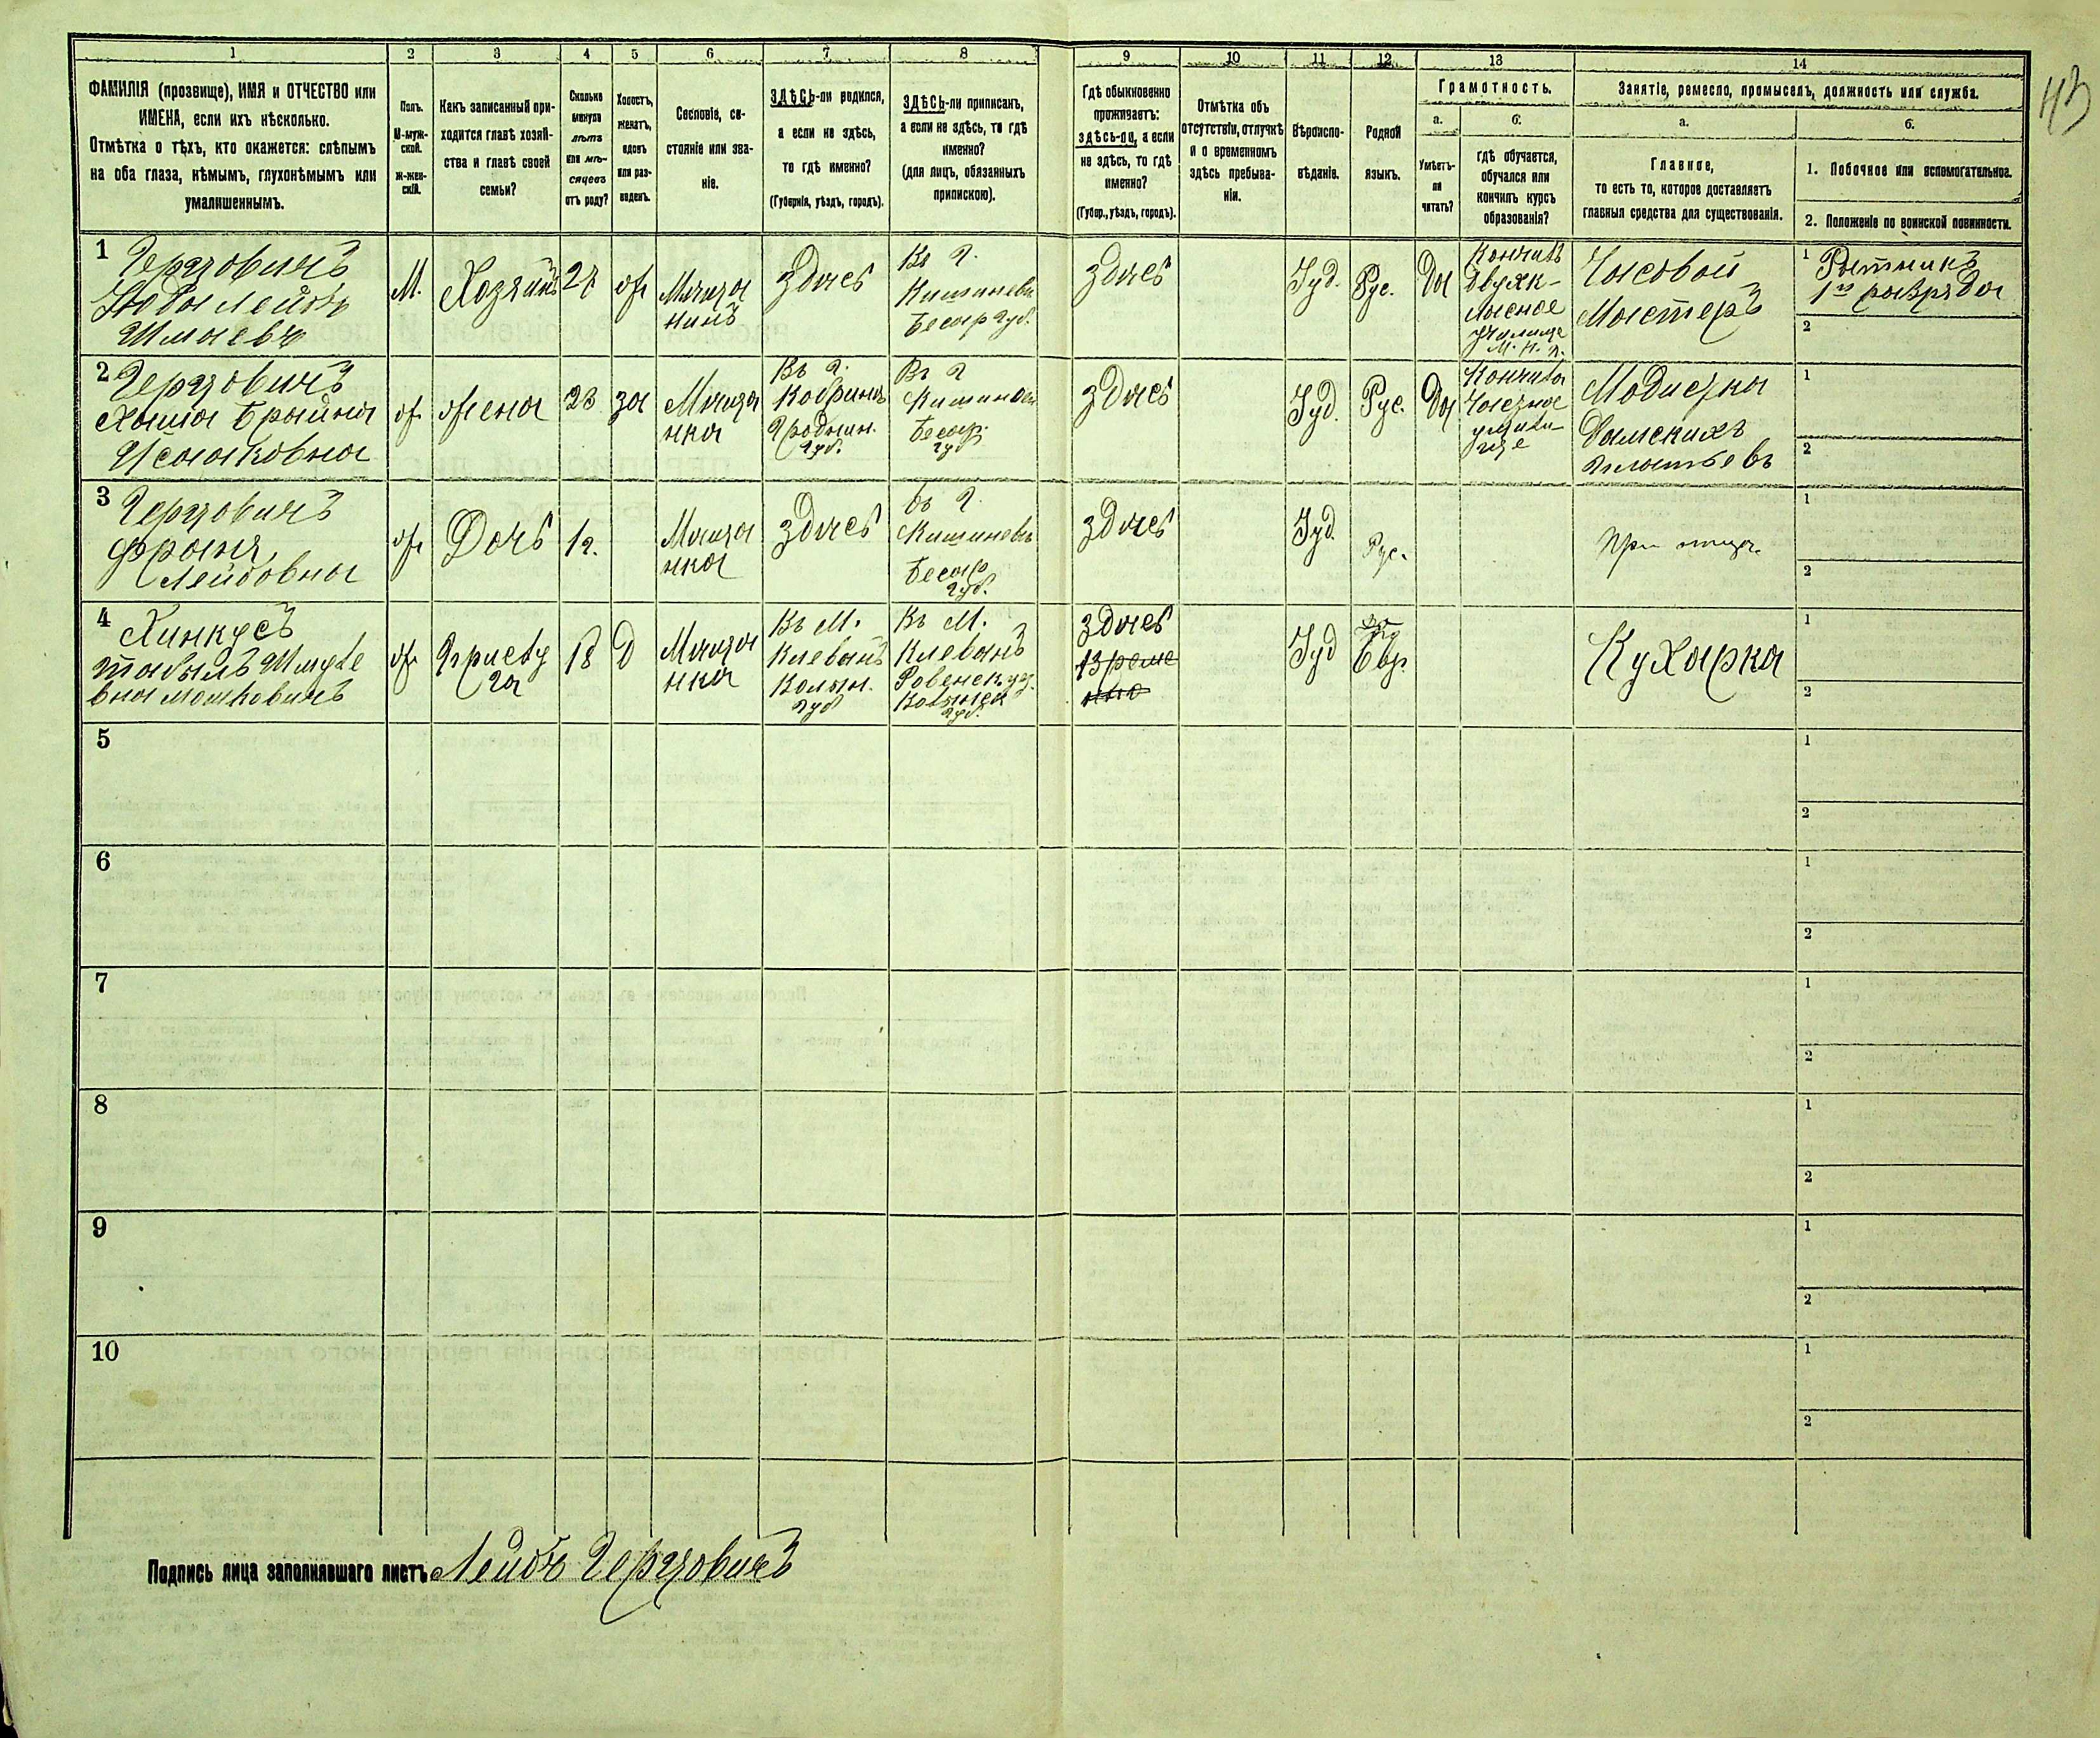 43
1 2 3 4 5 6 7 8 9 10 11 12 13 14
ФАМИЛІЯ (прозвище), ИМЯ и ОТЧЕСТВО или
ИМЕНА, если ихъ нѣсколько.
Отмѣтка о тѣхъ, кто окажется: слѣпымъ
на оба глаза, нѣмымъ, глухонѣмымъ или
умалишеннымъ.
Полъ.
М-муж-
ской.
Ж-жен-
скій.
Какъ записанный при-
ходится главѣ хозяй-
ства и главѣ своей
семьи?
Сколько
минуло
лѣтъ
или мѣ-
сяцевъ
отъ роду?
Холостъ,
женатъ,
вдовъ
или раз-
веденъ.
Сословіе, со-
стояніе или зва-
ніе.
ЗДѢСЬ-ли родился,
а если не здѣсь,
то гдѣ именно?
(Губернія, уѣздъ, городъ).
ЗДѢСЬ-ли приписанъ,
а если не здѣсь, то гдѣ
именно?
(для лицъ, обязанныхъ
припискою).
Гдѣ обыкновенно
проживаетъ:
здѣсь-ли, а если
не здѣсь, то гдѣ
именно?
(Губер., уѣздъ, городъ).
Отмѣтка объ
отсутствіи, отлучкѣ
и о временномъ
здѣсь пребыва-
ніи.
Вѣроиспо-
вѣданіе.
Родной
языкъ.
Грамотность.
а.
Умѣетъ-
ли
читать?
б.
гдѣ обучается,
обучался или
кончилъ курсъ
образованія?
Занятіе, ремесло, промыселъ, должность или служба.
а.
Главное,
то есть то, которое доставляетъ
главныя средства для существованія.
б.
1. Побочное или вспомогательное.
2. Положеніе по воинской повинности.
1
Герцовичъ
Юда Лейбъ
Шмаевъ
М.
Хозяинъ
27
ж
Мѣща
нинъ
здѣсь
Въ г.
Кишиневѣ
Бесар губ.
здѣсь
Іуд.
Рус.
Да
Кончилъ
двухк-
ласное
Училище
М. Н. П.
Часовой
Мастеръ
1 Ратникъ
1го разряда
2
2
Герцовичъ
Хаша Брайна
Исааковна
ж
жена
23
за
Мѣща
нка
Въ г.
Кобринъ
Гроднен.
губ.
Въ г
Кишинев
Бесар.
губ
здѣсь
Іуд.
Рус.
Да
Кончила
Часзное
учили-
ще
Модистка
Дамскихъ
платьевъ
1
2
3
Герцовичъ
Франя
Лейбовна
ж
Дочь
1г.
Мѣща
нка
здѣсь
въ г.
Кишиневѣ
Бесар
губ.
здѣсь
Іуд.
Рус.
При отцѣ.
1
2
4
Хинкусъ
ж
Прислу
га
18
Д
Мѣща
нка
Въ М.
Клевань
Волын.
губ
Въ М.
Клевань
Ровенск уѣз.
Волынск
губ.
здѣсь
време
нно
Іуд
Евр.
Кухарка
1
2
5
1
2
6
1
2
7
1
2
8
1
2
9
1
2
10
1
2
Подпись лица заполнявшаго листъ Лейбъ Герцовичъ